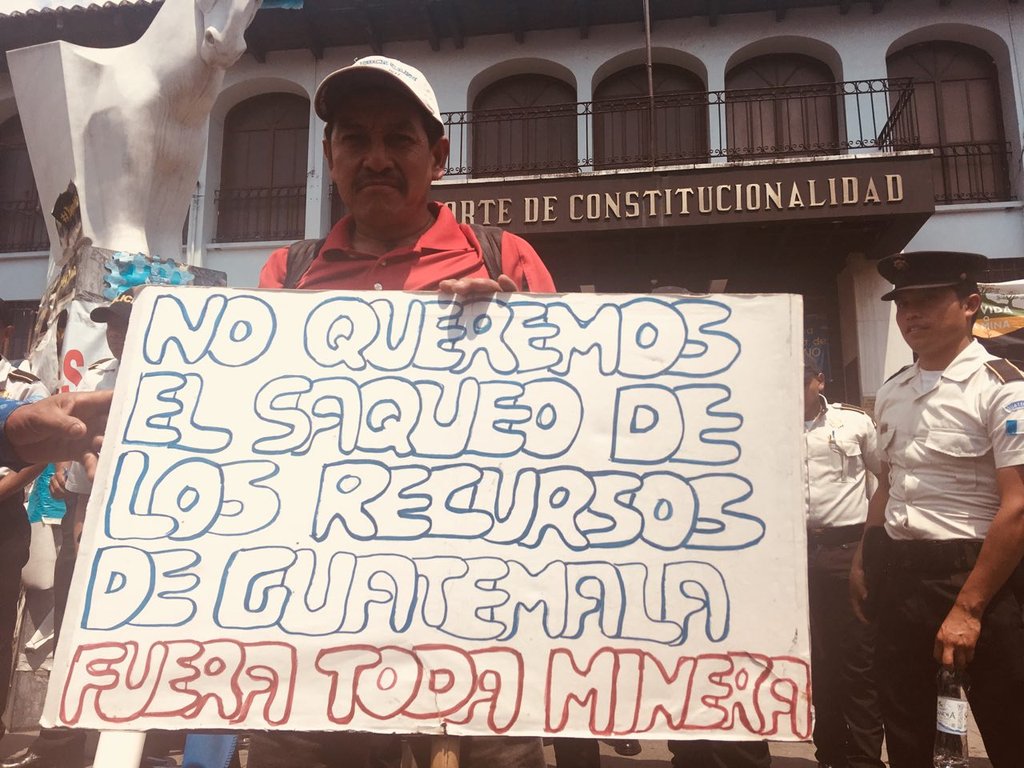 ORTE DE CONSTITUCIONALIDAD
NO QUEREMOS
EL SAQUEO DE
LOS RECURSOS
DE GUATEMALA
FUERA TODA MINERA
VIDA